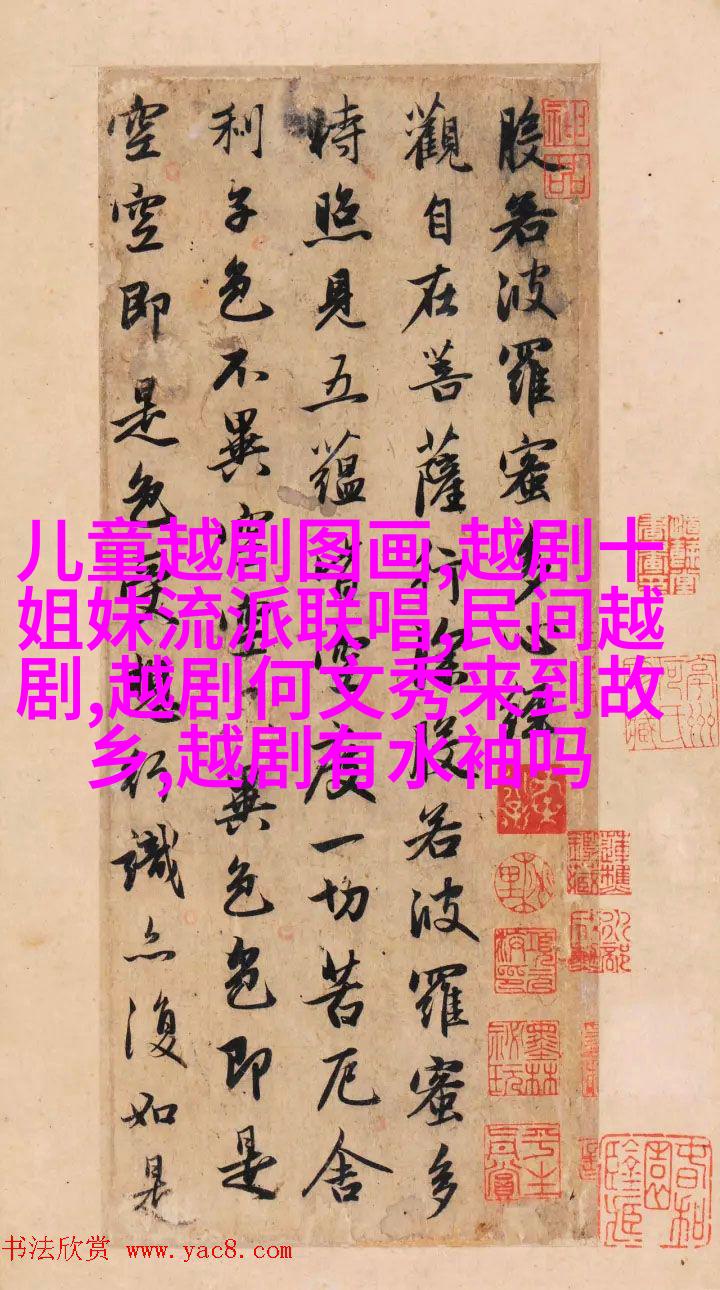 般若波羅蜜多心經
觀自在菩薩行深般若波羅蜜多
時照見五蘊皆空度一切苦厄舍
利子色不異空空不異色色即是
空空即是色受想行識亦復如是
神品
儿童越剧图画,越剧十
姐妹流派联唱,民间越
剧,越剧何文秀来到故
乡,越剧有水袖吗
书法欣赏 www.yac8.com